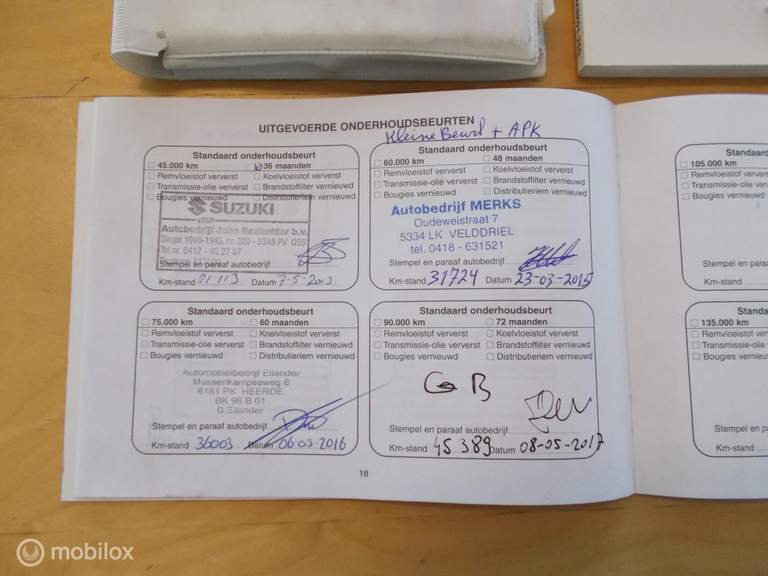 UITGEVOERDE ONDERHOUDSBEURTEN
Kleine Beurt + APK
Standaard onderhoudsbeurt
45.000 km 36 maanden
Remvloeistof ververst Koelvloeistof ververst
Transmissie-olie ververst Brandstoffilter vernieuwd
Bougies vernieuwd Distributieriem vernieuwd
SUZUKI
Autobedrijf John
Singel 1940-1945, nr. 5348 PV OSS
Tel nr. 0412 -
Stempel en paraaf autobedrijf
Km-stand 21113 Datum 7-5-2013
Standaard onderhoudsbeurt
60.000 km 48 maanden
Remvloeistof ververst Koelvloeistof ververst
Transmissie-olie ververst Brandstoffilter vernieuwd
Bougies vernieuwd Distributieriem vernieuwd
Autobedrijf MERKS
Oudeweistraat 7
5334 LK VELDDRIEL
tel. 0418 - 631521
Stempel en paraaf autobedrijf
Km-stand 31724 Datum 23-03-2015
Standa
105.000 km
Remvloeistof ver
Transmissie-olie
Bougies vernieu
Stempel en para
Km-stand
Standaard onderhoudsbeurt
75.000 km 60 maanden
Remvloeistof ververst Koelvloeistof ververst
Transmissie-olie ververst Brandstoffilter vernieuwd
Bougies vernieuwd Distributieriem vernieuwd
Automobielbedrijf Eilander
Mussenkampseweg 6
8181 PK HEERDE
BK 96 B 01
B.Eilander
Stempel en paraaf autobedrijf
Km-stand 36003 Datum 06 03 2016
Standaard onderhoudsbeurt
90.000 km 72 maanden
Remvloeistof ververst Koelvloeistof ververst
Transmissie-olie ververst Brandstoffilter vernieuwd
Bougies vernieuwd Distributieriem vernieuwd
GB
Stempel en paraaf autobedrijf
Km-stand 45389 Datum 08-05-2017
Standa
135.000 km
Remvloeistof ver
Transmissie-olie
Bougies vernieu
Stempel en para
Km-stand
18
mobilox